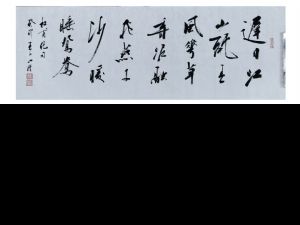 遲日江
山麗春
風華草
香泥融
飛燕子
沙暖
睡鴛鴦
杜甫絕句